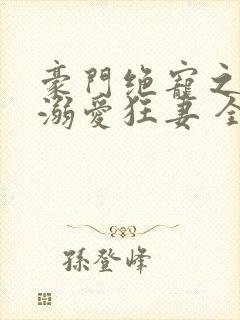 豪門絶寵之
溺愛狂妻全
孫登峰